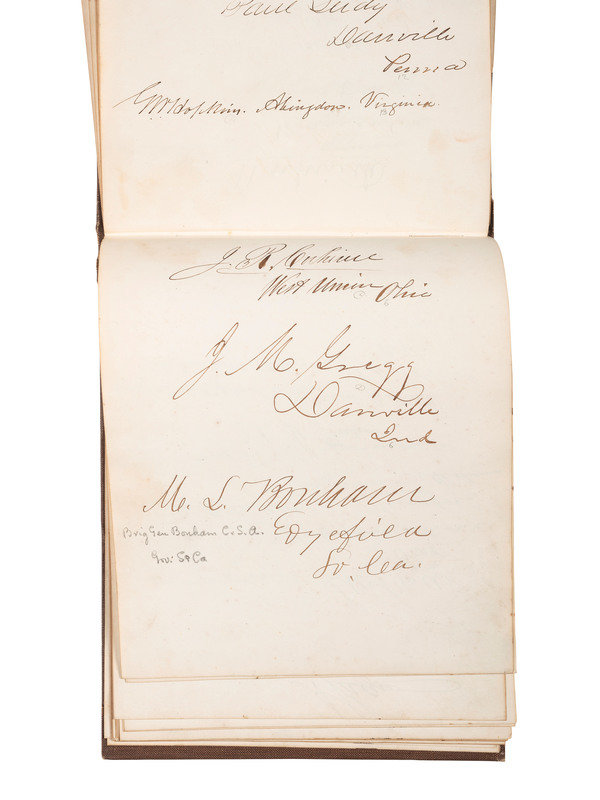 Paul Leidy
Danville
Penna
G W Hopkins. Abingdon. Virginia.
J. R. Cockerill
West Union Ohio
J. M. Gregg
Danville
Ind
M. L. Bonham
Brig Gen Bonham C.S.A. Edgefield
Gov: So Ca So. Ca.